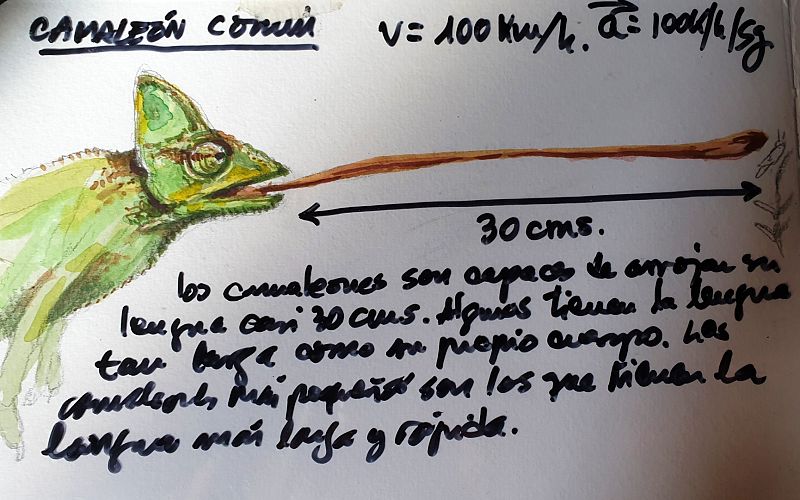 CAMALEÓN COMÚN
V = 100 Km/h. a = 100K/h/sg
30 cms.
los camaleones son capaces de arrojar su
lengua casi 30 cms. Algunos tienen la lengua
tan larga como su propio cuerpo. Los
camaleones más pequeños son los que tienen la
lengua más larga y rápida.